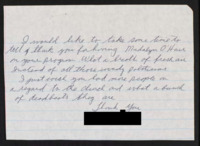 I would like to take some time to
tell & thank you for having Madalyn O'Hair
on your program. What a breath of fresh air
instead of all those windy politicians.
I just wish you had more people in
regard to the church and what a bunch
of deadbeats they are.
Thank You